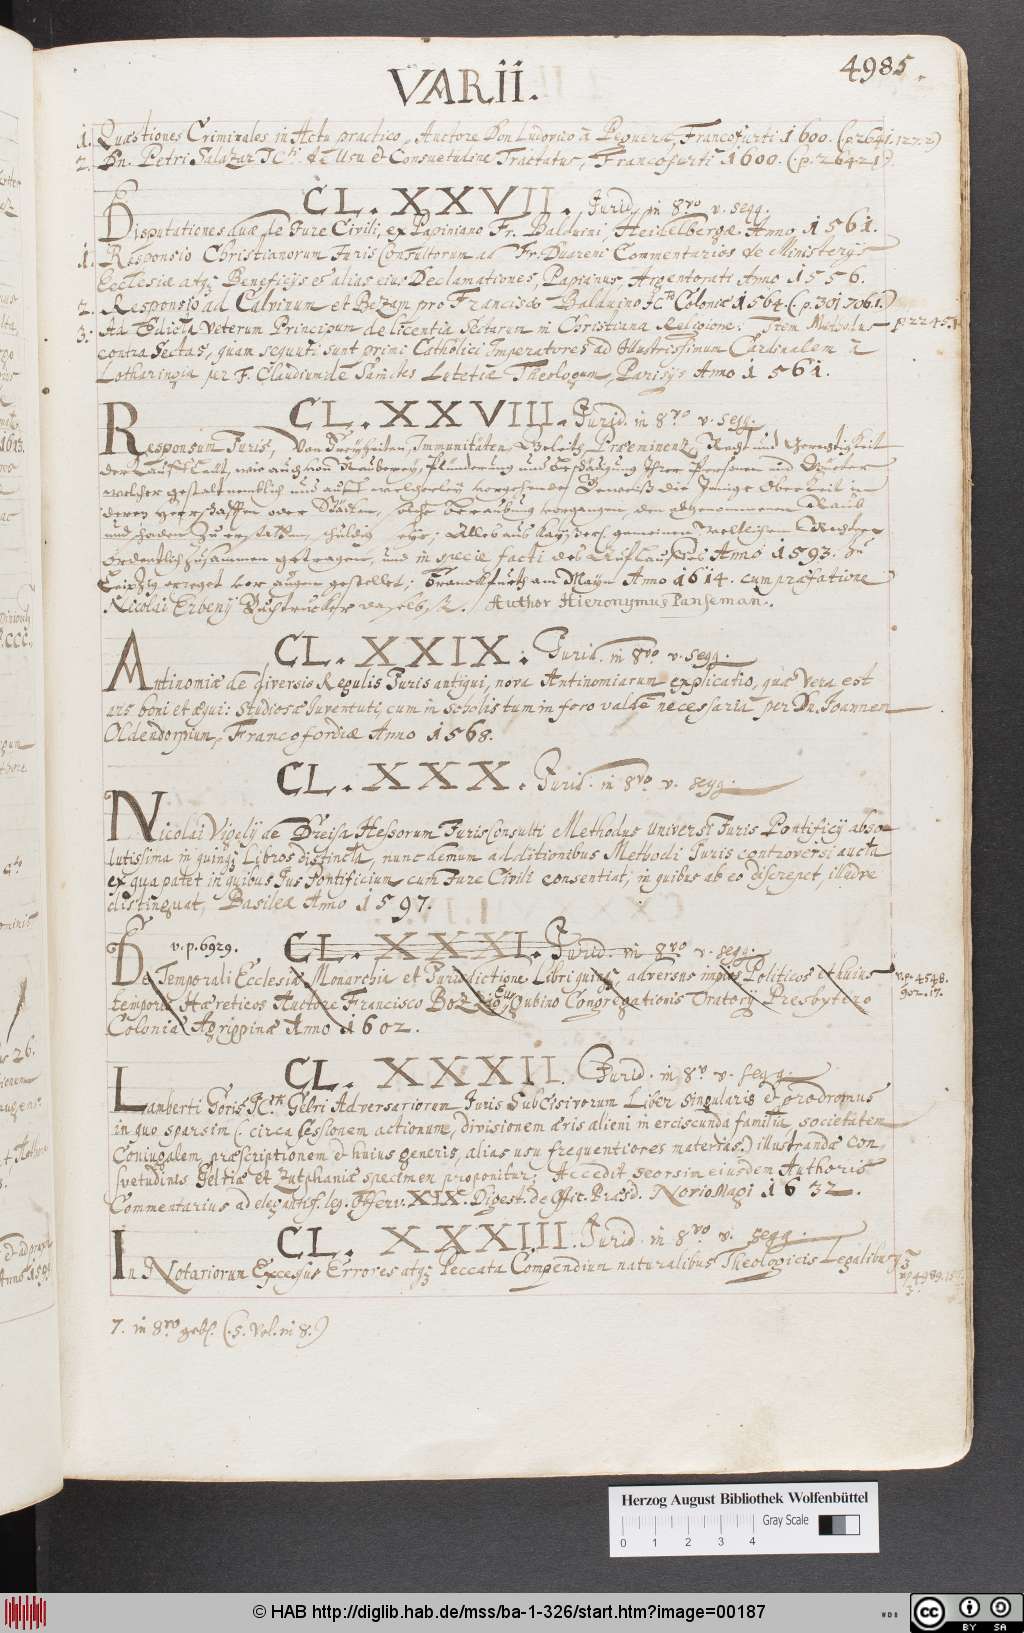 4985.
VARII.
1. Quæstiones Criminales in Actu practico, Auctore Don Ludovico à Peguera, Francofurti 1600. (p. 2641.127.2)
2. Dn. Petri Salazar JCti de Usu et Consuetudine Tractatus, Francofurti 1600. (p. 26421).
CL. XXVII. Jurid. in 8vo v. seqq.
Disputationes duæ de Jure Civili, ex Papiniano Fr. Balduini, Heidelbergæ Anno 1561.
1. Responsio Christianorum Juris Consultorum ad Fr. Duareni Commentarios de Ministerijs
Ecclesiæ atq; Beneficijs et alias eius Declamationes, Papianus, Argentorati Anno 1556.
2. Responsio ad Calvinum et Bezam pro Francisco Balduino JCto Coloniæ 1564. (p. 301.7061.)
3. Ad Edicta Veterum Principum de licentia Sectarum in Christiana Religione: Item Methodus p 2245.1
contra Sectas, quam sequuti sunt primi Catholici Imperatores ad Illustrissimum Cardinalem à
Lotharingia per F. Claudium de Sainctes Letetiæ Theologum, Parisijs Anno 1561.
CL. XXVIII. Jurid. in 8vo v. seqq.
Responsum Juris, Von Freyheiten, Immunitäten, Geleits Præeminenz, Recht und Gerechtigkeit
der Kauffleutt, wie auch von Rauberey, Plünderung und beschädigung Ihrer Personen und Güeter
welcher gestalt nemblich und auff welcherley vorgehenden Beweiß die Jenige Oberkeit in
deren Herrschafften oder Stätten, solche beraubung vorgangen, den abgenommenen Raub
und schaden Zu erstatten, schuldig seye; Alles aus Kayserl. gemeinen Weltlichen Rechten
ordentlich zusammen getragen, und in specie facti des Anno 1593. Zu
Leipzig erreget vor augen gestellet; Franckfurth am Mayn Anno 1614. cum præfatione
Nicolai Erbenij Buchtrucker daselbst. Author Hieronymus Panseman.
CL. XXIX. Jurid. in 8vo v. seqq.
Antinomiæ de diversis Regulis Juris antiqui, nova Antinomiarum explicatio, quæ vera est
ars boni et æqui: Studiosæ Iuventuti, cum in scholis tum in foro valdè necessaria per Dn. Joannem
Oldendorpium, Francofordiæ Anno 1568.
CL. XXX. Jurid. in 8vo v. seqq.
Nicolai Vigelij de Dreisa Hessorum JurisConsulti Methodus universi Juris Pontificij abso-
lutissima in quinq; Libros distincta, nunc demum additionibus Methodi Juris controversi aucta
ex qua patet in quibus Jus Pontificium cum Jure Civili consentiat, in quibus ab eo discrepet, illudve
distinguat, Basileæ Anno 1597.
v. p. 6929. CL. XXXI. Jurid. in 8vo v. seqq.
De Temporali Ecclesiæ Monarchia et Jurisdictione Libri quinq; adversus impios Politicos et huius v. p. 4548.
temporis Hæreticos Auctore Francisco Bozzio, Eugubino Congregationis Oratorij Presbytero 902. 17.
Coloniæ Agrippinæ Anno 1602.
CL. XXXII. Jurid. in 8o v. seqq.
Lamberti Goris JCti Gelri Adversariorum Juris Subcisivorum Liber singularis et prodromus
in quo sparsim (: circa Cessionem actionum, divisionem æris alieni in erciscunda familia, societatem
Coniugalem, præscriptionem et huius generis, alias usu frequentiores materias:) illustrandæ Con-
svetudinis Gelriæ et Zutphaniæ specimen proponitur; Accedit seorsim eiusdem Authoris
Commentarius ad elegantiss. leg. Observ. XIX. Digest. de Offic. Præsid. NovioMagi 1632.
CL. XXXIII. Jurid. in 8vo v. seqq.
In Notariorum Excessus Errores atq; Peccata Compendium naturalibus Theologicis Legalibusq;
7. in 8vo gebs. (.5. Vol. in 8.)
Herzog August Bibliothek Wolfenbüttel
Gray Scale
0 1 2 3 4
© HAB http://diglib.hab.de/mss/ba-1-326/start.htm?image=00187
WDB
cc BY SA